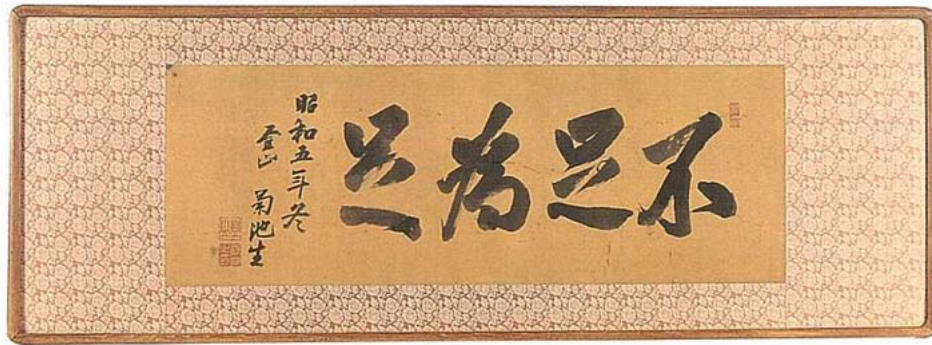 不足為足
昭和五年冬
菊池生